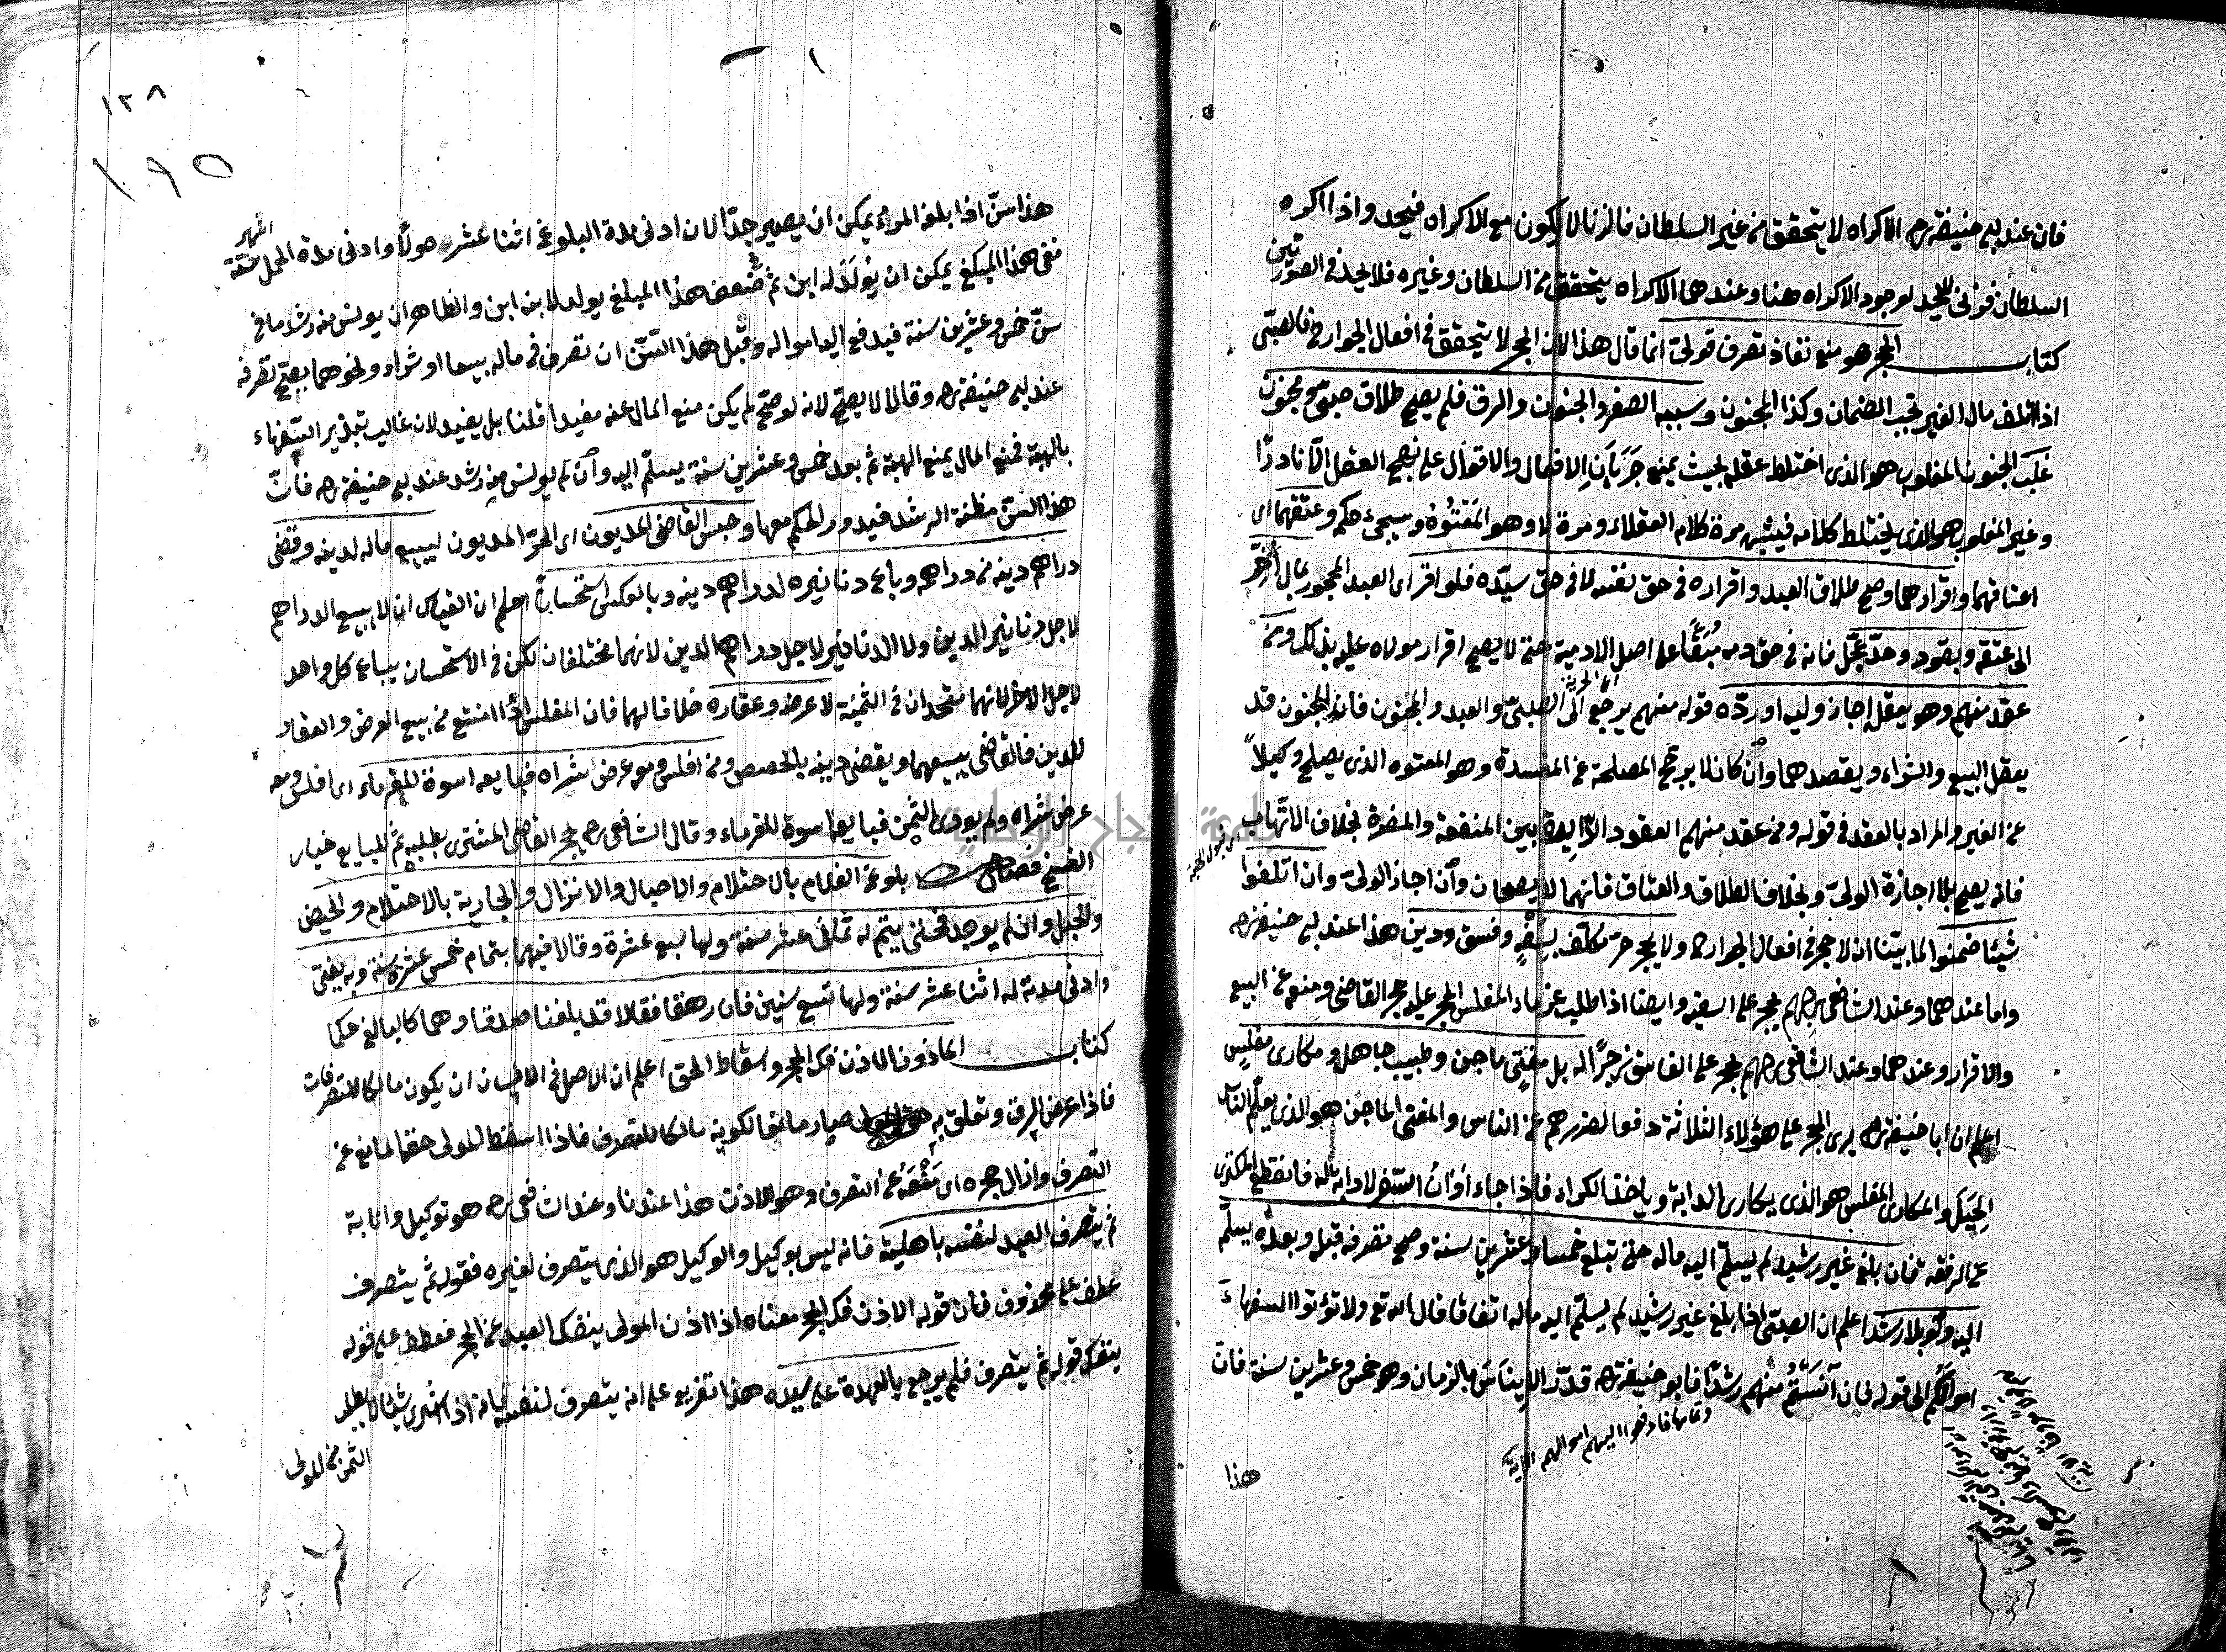 فان عند ابى حنيفة رحه الاكراه لا يتحقق من غير السلطان فالزنا لا يكون مع الاكراه فيحد واذا اكره
السلطان فزنى لا يحد لوجود الاكراه هنا وعندهما الاكراه يتحقق من السلطان وغيره فلا يحد فى الصورتين
كتاب الحجر هو منع نفاذ تصرف قولى انما قال هذا لان الحجر لا يتحقق فى افعال الجوارح فالصبى
اذا اتلف مال الغير تجب الضمان وكذا المجنون وسببه الصغر والجنون والرق فلم يصح طلاق صبى ومجنون
غلب الجنون المغلوب هو الذى اختلط عقله بحيث يمنع جريان الافعال والاقوال على نهج العقل الا نادرا
وغير المغلوب هو الذى يختلط كلامه فيشبه مرة كلام العقلاء ومرة لا وهو المعتوه وسيجئ حكمه وعتقهما اى
اعتاقهما واقرارهما وصح طلاق العبد واقراره فى حق نفسه لا فى حق سيده فلو اقر اى العبد المحجور بمال اخر
الى عتقه وبقود وحد عجل فانه فى حق دمه مبقا على اصل الادمية حتى لا يصح اقرار مولاه عليه بذلك ومن
عقد منهم وهو يعقله اجاز وليه او رده قوله منهم يرجع الى الصبى والعبد والمجنون فان المجنون قد
يعقل البيع والشراء ويقصدهما وان كان لا يرجح المصلحة عن المفسدة وهو المعتوه الذى يصلح وكيلا
عن الغير والمراد بالعقد فى قوله ومن عقد منهم العقود الدايرة بين المنفعة والمضرة بخلاف الاتهاب
فانه يصح بلا اجازة الولى وبخلاف الطلاق والعتاق فانهما لا يصحان وان اجاز الولى وان اتلفوا
شيئا ضمنوا لما بينا ان لا حجر فى افعال الجوارح ولا يحجر حر مكلف بسفه وفسق ودين هذا عند ابى حنيفة رحه
واما عندهما وعند الشافعى رحهم يحجر على السفيه وايضا اذا طلب غرماء المفلس الحجر عليه حجر القاضى ومنعه عن البيع
والاقرار وعندهما وعند الشافعى رحهم يحجر على الفاسق زجرا له بل مفتى ماجن وطبيب جاهل ومكارى مفلس
اعلم ان ابا حنيفة رحه يرى الحجر على هؤلاء الثلاثة دفعا لضررهم عن الناس والمفتى الماجن هو الذى يعلم الناس
الحيل والمكارى المفلس هو الذى يكارى الدابة وياخذ الكراء فاذا جاء اوان السفر لا دابة له فانقطع المكترى
عن الرفقه فان بلغ غير رشيد لم يسلم اليه ماله حتى تبلغ خمسا وعشرين سنة وصح تصرفه قبله وبعده يسلم
اليه ولو بلا رشد اعلم ان الصبى اذا بلغ غير رشيد لم يسلم اليه ماله اتفاقا قال الله تع ولا تؤتوا السفهاء
اموالكم الى قوله فان آنستم منهم رشدا فابو حنيفة رحه قدر الايناس بالزمان وهو خمس وعشرين سنة فان
وتمامها فادفعوا اليهم اموالهم الاية
هذا
١٢٨
١٩٥
هذا سن اذا بلغه المرء يمكن ان يصير جدا لان ادنى مدة البلوغ اثنا عشر حولا وادنى مدة الحمل ستة
اشهر
ففى هذا المبلغ يمكن ان يولد له ابن ثم فى ضعف هذا المبلغ يولد لابنه ابن والظاهر ان يونس منه رشد ما فى
سن خمس وعشرين سنة فيدفع اليه امواله وقبل هذا السن ان تصرف فى ماله بيعا او شراء ونحوهما يصح تصرفه
عند ابى حنيفة رحه وقالا لا يصح لانه لو صح لم يكن منع المال عنه مفيدا قلنا بل يفيد لان غالب تبذير السفهاء
بالهبة فمنع المال يمنع الهبة ثم بعد خمس وعشرين سنة يسلم اليه وان لم يونس منه رشد عند ابى حنيفة رحه فان
هذا السن مظنة الرشد فيدور الحكم معها وحبس القاضى المديون اى الحر المديون ليبيع ماله لدينه وقضى
دراهم دينه من دراهمه وباع دنانيره لدراهم دينه وبالعكس استحسانا اعلم ان القياس ان لا يبيع الدراهم
لاجل دنانير الدين ولا الدنانير لاجل دراهم الدين لانهما مختلفان لكن فى الاستحسان يباع كل واحد
لاجل الاخر لانهما متحدان فى الثمنية لا عرضه وعقاره خلافا لهما فان المفلس اذا امتنع من بيع العرض والعقار
للدين فالقاضى يبيعهما ويقضى دينه بالحصص ومن افلس ومعه عرض شراه فبايعه اسوة للغرماء اى افلس ومعه
عرض شراه ولم يودى الثمن فبايعه اسوة للغرماء وقال الشافعى رحه يحجر القاضى المشترى بطلبه ثم للبايع خيار
الفسخ فصل بلوغ الغلام بالاحتلام والاحبال والانزال والجارية بالاحتلام والحيض
والحبل وان لم يوجد فحتى يتم له ثمانى عشر سنة ولها سبع عشرة وقالا فيهما بتمام خمس عشرة سنة وبه يفتى
وادنى مدته له اثنا عشر سنة ولها تسع سنين فان رهقا فقالا قد بلغنا صدقا وهما كالبالغ حكما
كتاب الماذون الاذن فك الحجر واسقاط الحق اعلم ان الاصل فى الانسان ان يكون مالكا للتصرفات
فاذا عرض الرق وتعلق به صار مانعا لكونه مالكا للتصرف فاذا اسقط المولى حقه المانع عن
التصرف وازال حجره اى منعه عن التصرف وهو الاذن هذا عندنا وعند الشافعى رحه هو توكيل وانابة
ثم يتصرف العبد لنفسه باهليته فانه ليس بوكيل والوكيل هو الذى يتصرف لغيره فقوله ثم يتصرف
عطف على محذوف فان قوله الاذن فك الحجر معناه اذا اذن المولى ينفك العبد عن الحجر فعطف على قوله
ينفك قوله ثم يتصرف فلم يرجع بالعهدة على سيده هذا تفريع على انه يتصرف لنفسه فانه اذا اشترى شيئا لا يطلب
الثمن من المولى